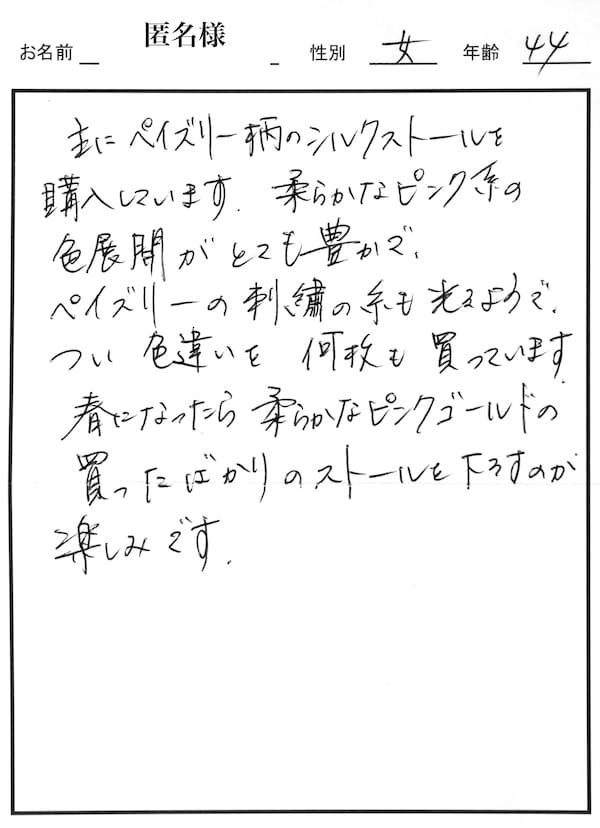 お名前 匿名様 性別 女 年齢 44
主にペイズリー柄のシルクストールを
購入しています。柔らかなピンク系の
色展開がとても豊かで、
ペイズリーの刺繍の糸も光るようで、
つい色違いを何枚も買っています。
春になったら柔らかなピンクゴールドの
買ったばかりのストールを下ろすのが
楽しみです。